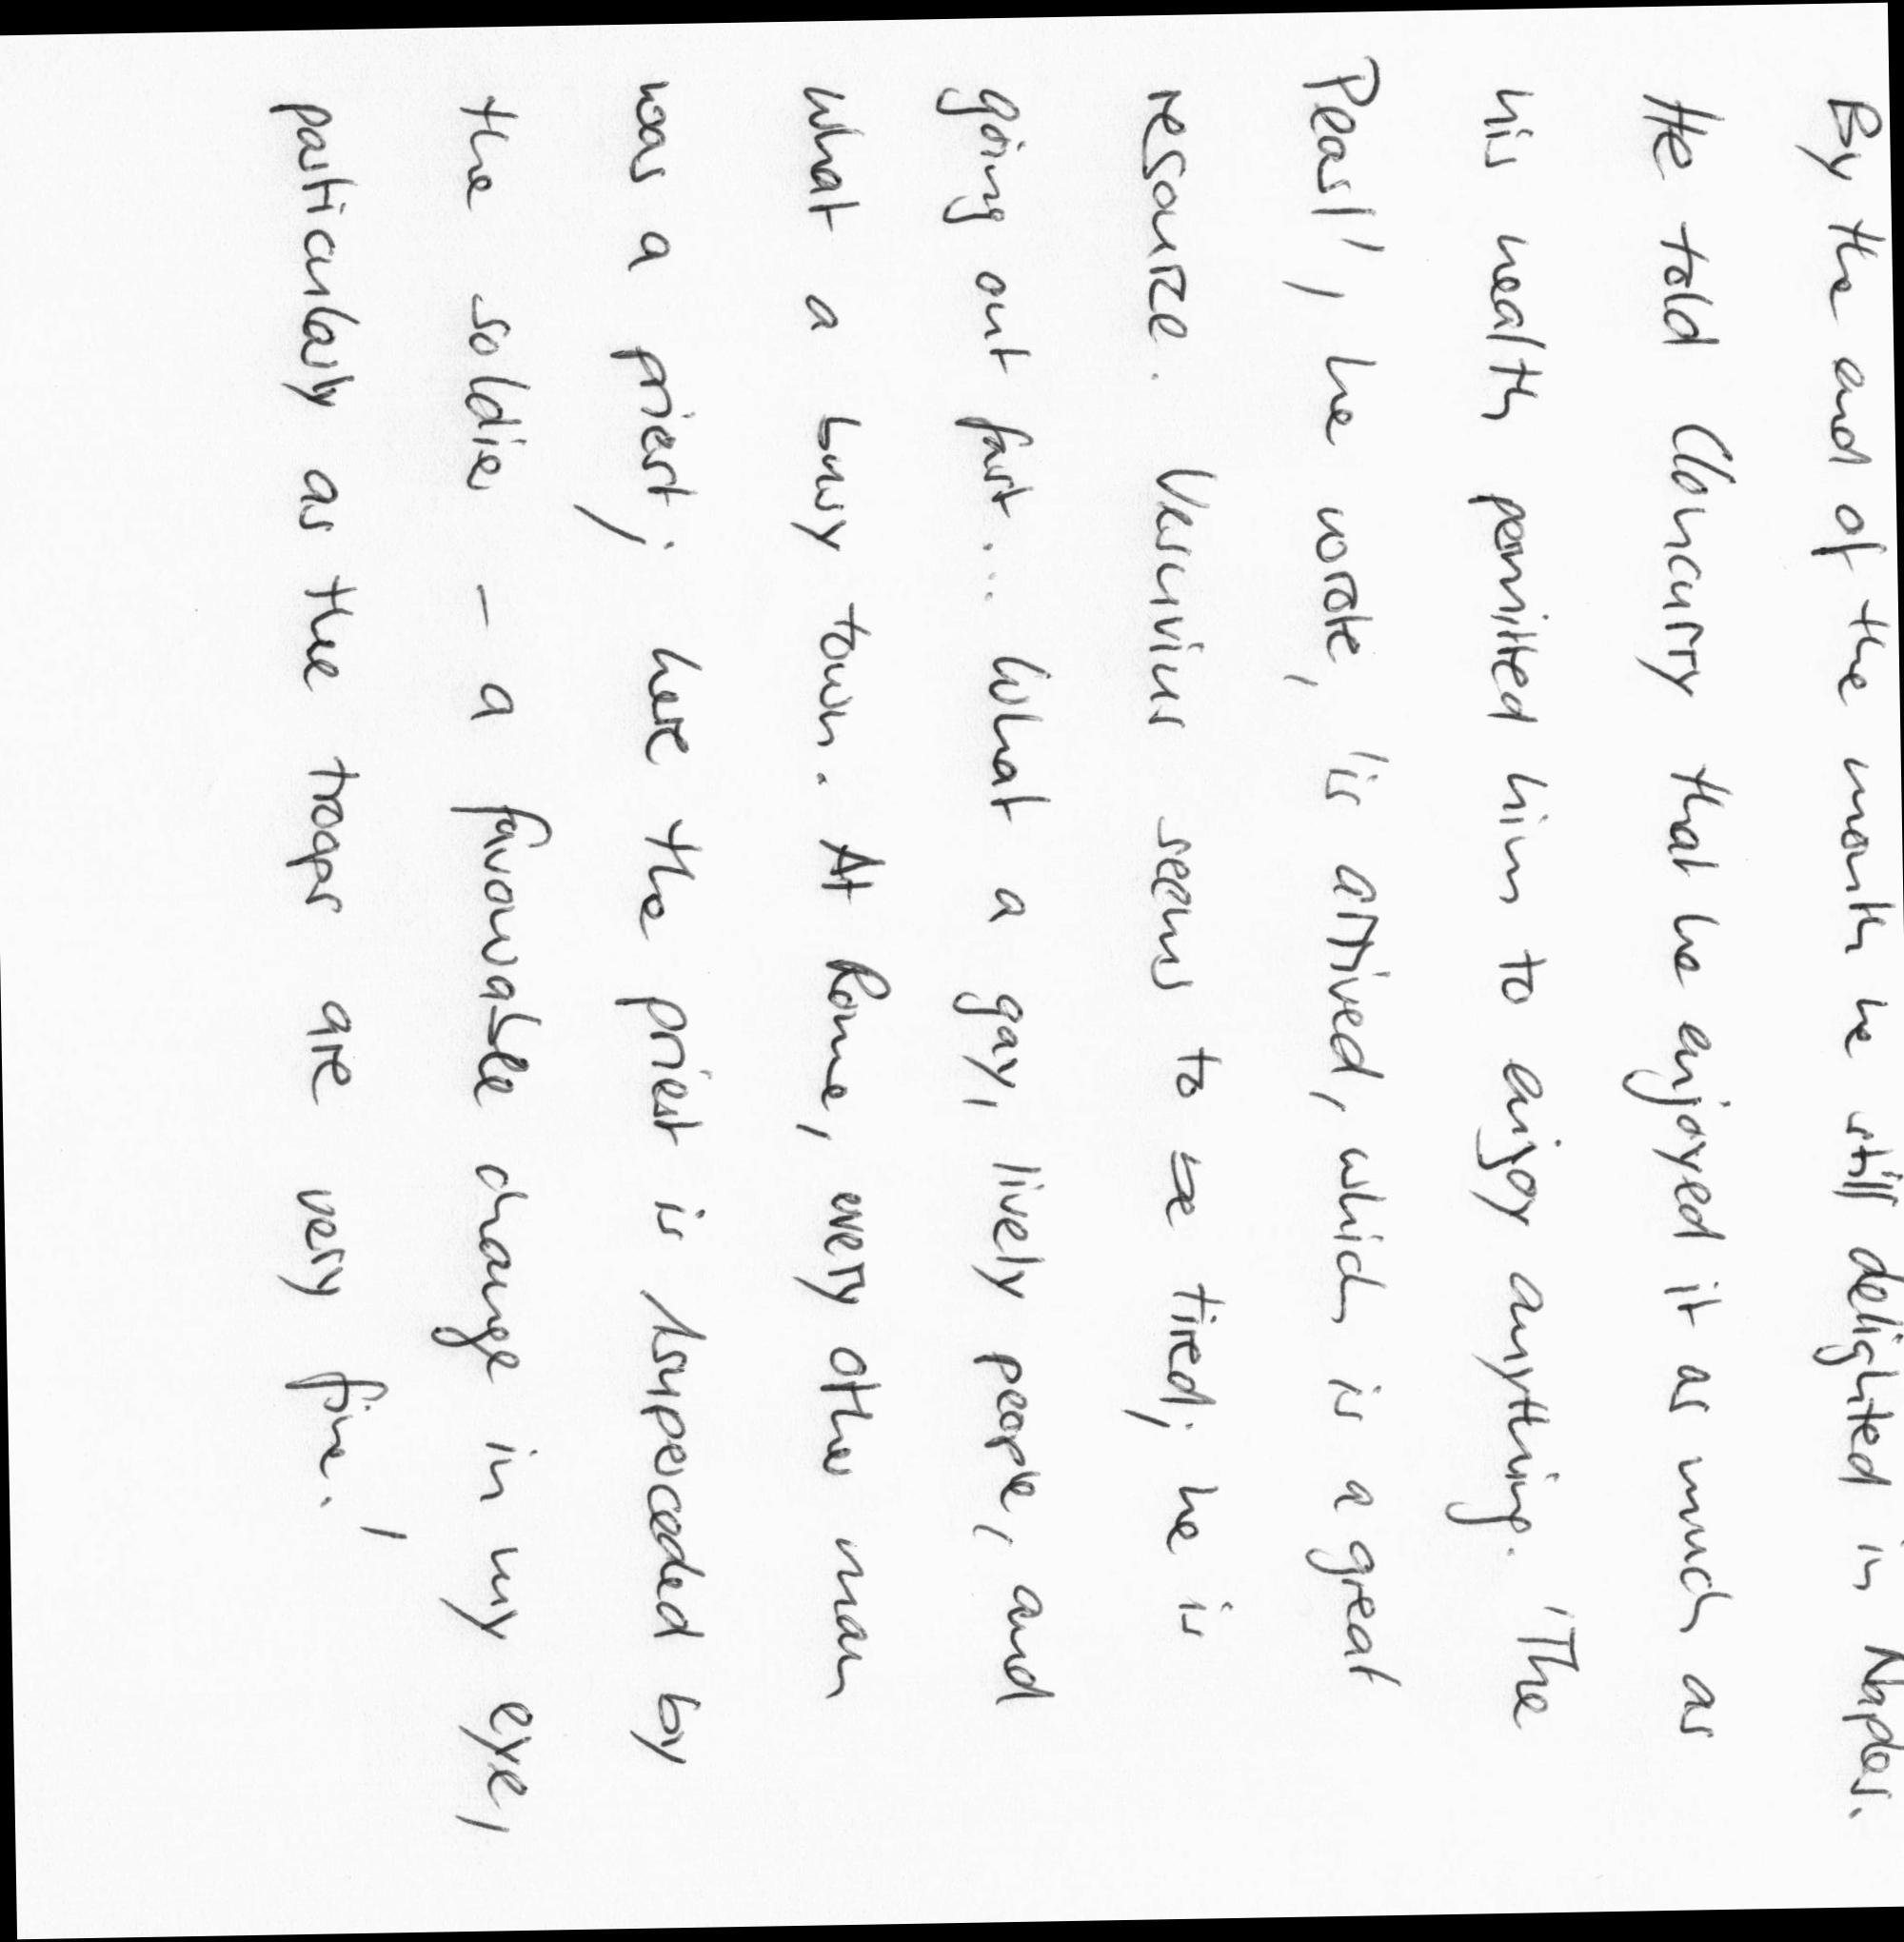 By the end of the month he still delighted in Naples.
He told Cloncurry that he enjoyed it as much as
his health permitted him to enjoy anything. 'The
Pearl', he wrote, 'is arrived, which is a great
resource. Vesuvius seems to be tired; he is
going out fast... What a gay, lively people, and
what a busy town. At Rome, every other man
was a priest; here the priest is superceded by
the soldier - a favourable change in my eye,
particularly as the troops are very fine.'